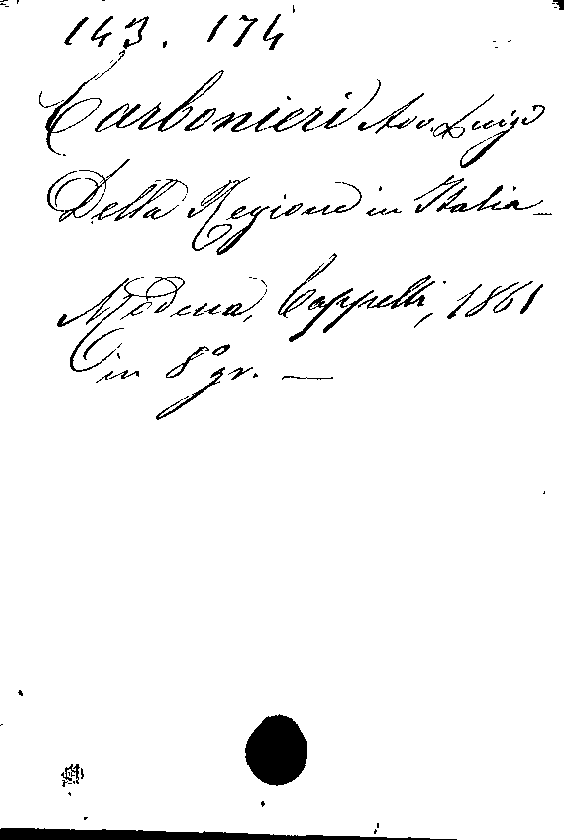 143. 174
Carbonieri Avv. Luigi
Della Regione in Italia _
Modena, Cappelli, 1861
in 8° gr. —